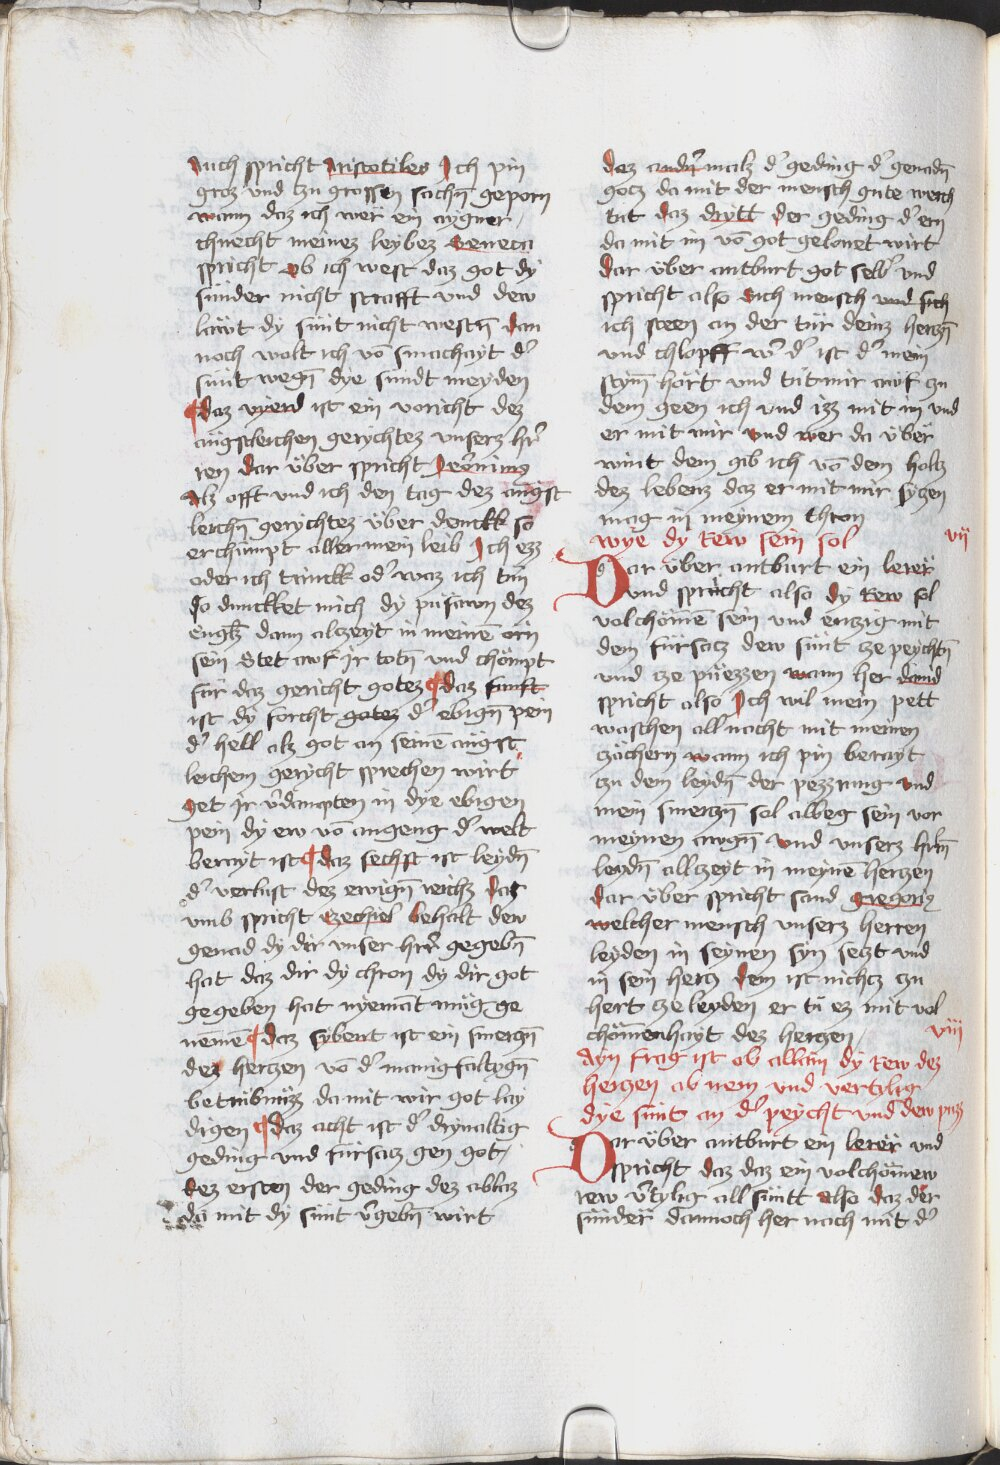 Auch spricht Aristotiles Ich pin
groz vnd czu grossen sachn̄ geporn
wann daz ich wer ein aygner
chnecht meinez leybez Seneca
spricht Ob ich west daz got dy
sünder nicht strafft vnd dew
läwt dy sünt nicht westn̄ dan
noch wolt ich vō smachayt dˀ
sünt wegn̄ dye sundt meyden
¶ daz vyerd ist ein voricht dez
angstleichen gerychtez vnserz hrˀ
ren Dar über spricht Jeronimus
Alz offt vnd ich den tag dez angst
leichn̄ gerychtez über denckk so
erchumpt aller mein leib Ich ezz
oder ich trinckk odˀ waz ich tün
so dunckket mich dy pusawn dez
engls dann alczeyt in meinē orn̄
sein Stet awf jr totn̄ vnd chömpt
für daz gericht gotez ¶ daz funft
ist dy forcht gotez dˀ ebign̄ pein
dˀ hell alz got an seinē angst
leichem gerycht sprechen wirt
Get jr vˀdampten in dye ebigen
pein dy ew vō angeng dˀ welt
berayt ist ¶ daz sechst ist leydn̄
dˀ verlust dez ewign̄ reichz Dar
vmb spricht Ezechiel behalt dew
genad dy dir vnser hrˀ gegebn̄
hat daz dir dy chron dy dir got
gegeben hat nyemāt müg ge
nemē ¶ daz sybent ist ein smerczn̄
dez herczen vō dˀ manigfaltign̄
betrübnüzz da mit wir got lay
digen ¶ Daz acht ist dˀ dryualtig
geding vnd fürsacz gen got
Dez ersten der geding dez ablaz
da mit dy sünt vˀgebn̄ wirt
daz andˀ malz dˀ geding dˀ genadn̄
gotz da mit der mensch gute werch
tüt daz drytt der geding dˀ ern
da mit im vō got gelonet wirt
Dar über antburt got selbˀ vnd
spricht also Sich mensch vnd sich
ich steen an der tür deinz herczn̄
vnd chlopff wˀ dˀ ist dˀ mein
stym̄ hört vnd tüt mir awf zu
dem geen ich vnd izz mit im vnd
er mit mir vnd wer da über
wint dem gib ich vō dem holcz
dez lebenz daz er mit mir syczen
mag in meynem thron
wye dy rew sein sol vij
Dar über antburt ein lerer
vnd spricht also dy rew sol
volchömē sein vnd enczig mit
dem fürsacz dew sünt cze peychtn̄
vnd cze püezzen wann her dauid
spricht also Ich wil mein pett
waschen all nacht mit meinen
czächern wann ich pin berayt
czu dem leydn̄ der pezzrung vnd
mein smerczn̄ sol albeg sein vor
meynen awgn̄ vnd vnserz hrn̄
leydn̄ allczeyt in meynē herczen
Dar über spricht sand Gregorius
welcher mensch vnserz herren
leyden in seynen syn seczt vnd
in sein hercz dem ist nichcz zu
hert cze leyden er tü ez mit vol
chömenhayt dez herczen viij
Ayn frag ist ob allain dy rew dez
herczen ab nem vnd vertylig
dye sünt an dˀ peycht vnd dew puzz
Dar über antburt ein lerer vnd
spricht daz daz ein volchömew
rew vˀtylig all süntt also daz der
sünder dannoch her nach mit dˀ